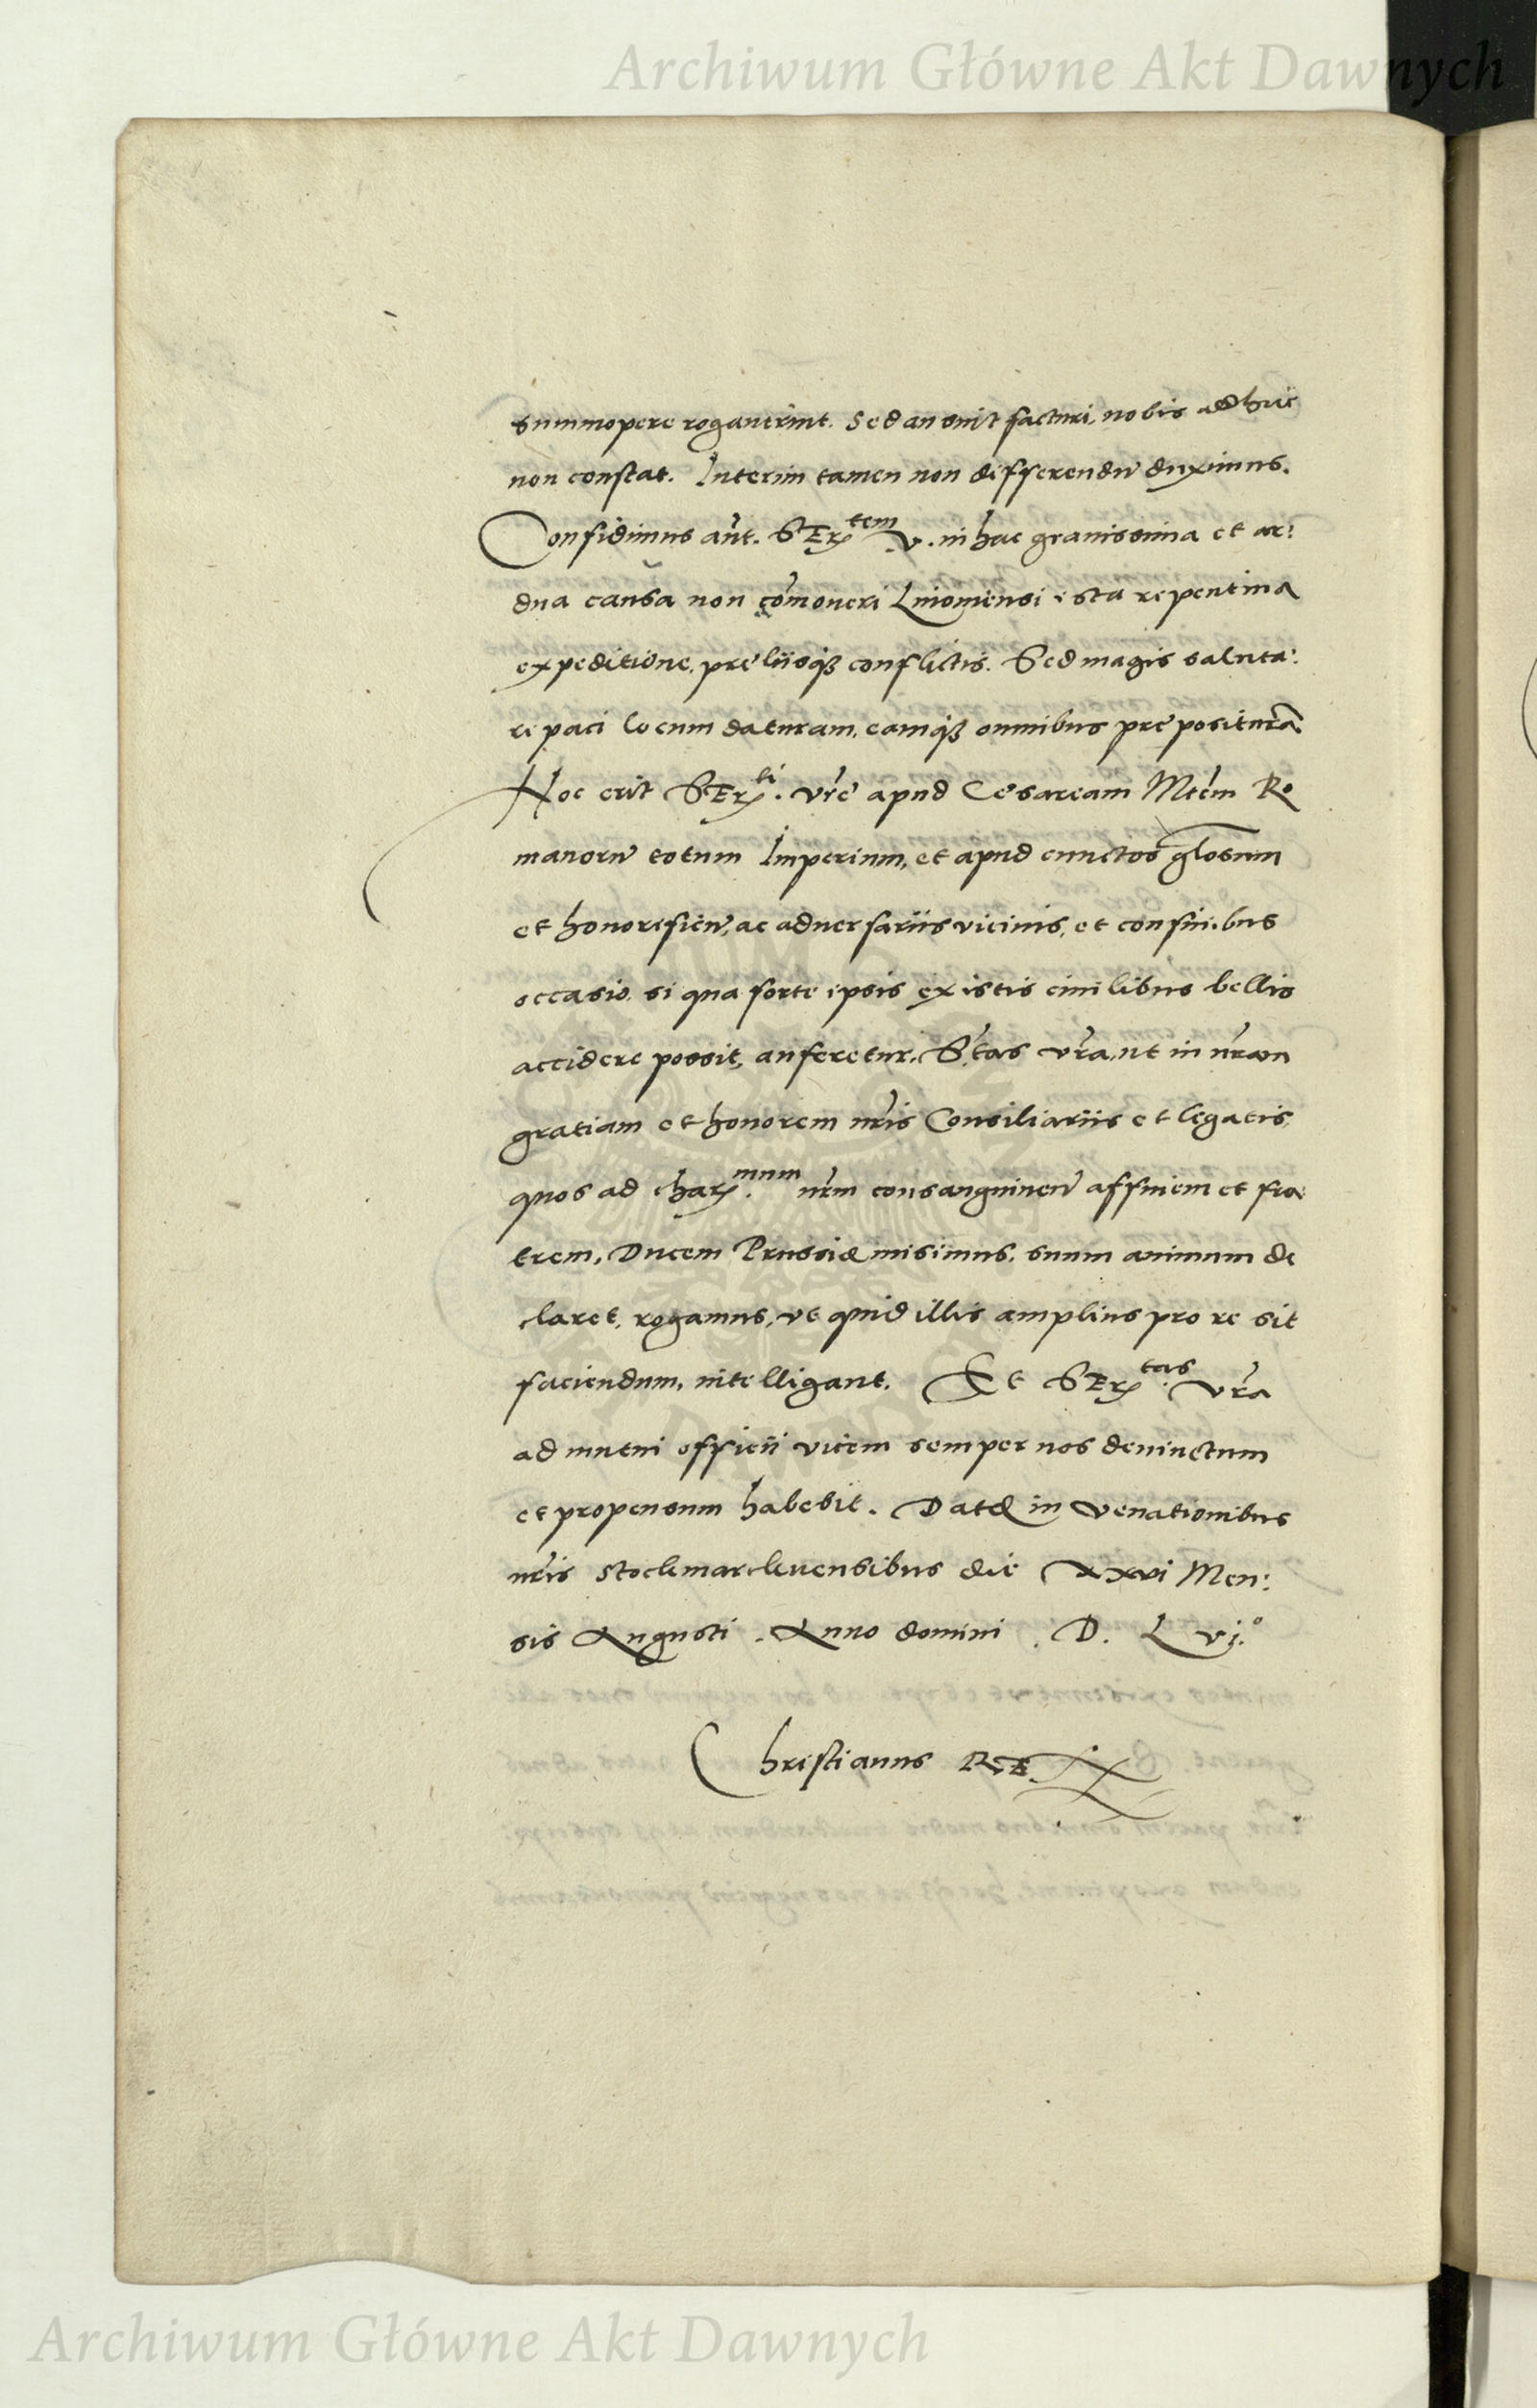 Archiwum Główne Akt Dawnych
summopere rogauerint. Sed an sint facturi, nobis adhuc
non constat. Interim tamen non differendũ duximus.
Confidimus aũt. SEr:tem V. in hac grauissima et ar:
dua causa non cõmoueri Liuoniensi ista repentina
expeditione, preliisq; conflictis. Sed magis saluta:
ri paci locum daturam, eamq; omnibus prepositurã
Hoc erit SEr:ti. vrẽ apud Cesaream Mtẽm Ro
manorũ totum Imperium, et apud cunctos glosum
et honorificũ, ac aduersariis vicinis, et confinibus
occasio, si qua forte ipsis ex istis ciuilibus bellis
accidere possit, auferetur. S.tas vrã, ut in nrãm
gratiam et honorem nrĩs Consiliariis et legatis,
quos ad char:mum nrm̃ consanguineũ affinem et fra
trem, Ducem Prussiæ misimus, suum animum de
claret, rogamus, vt quid illis amplius pro re sit
faciendum, intelligant. Et SEr:tas vrã
ad mutui officii vicem semper nos deuinctum
et propensum habebit. Datæ in Venationibus
nrĩs Stockmarckeuensibus die xxvi Men:
sis Augusti. Anno domini. D. L vj.°
Christianus REX
Archiwum Główne Akt Dawnych